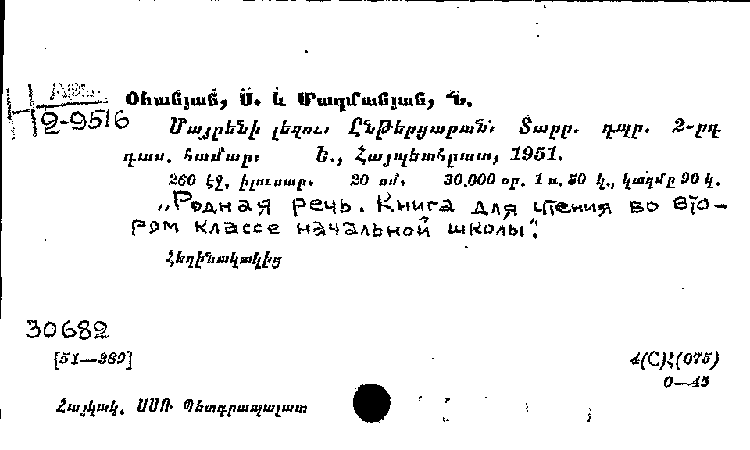 Н 2-9516
Օհանյան, Ս. և Մադմանյան, Ն.
Մայրենի լեզու։ Ընթերցարան։ Տարր. դպր. 2-րդ
դաս. համար։ Ե., Հայպետհրատ, 1951.
260 էջ, իլուստր. 20 սմ. 30.000 օր. 1 ռ. 50 կ., կազմը 90 կ.
„Родная речь. Книга для чтения во вто-
ром классе начальной школы“.
Հեղինակակից
30682
[51—389]
4(С)Հ(075)
Օ—43
Հայկակ. ՍՍՌ Պետգրապալատ